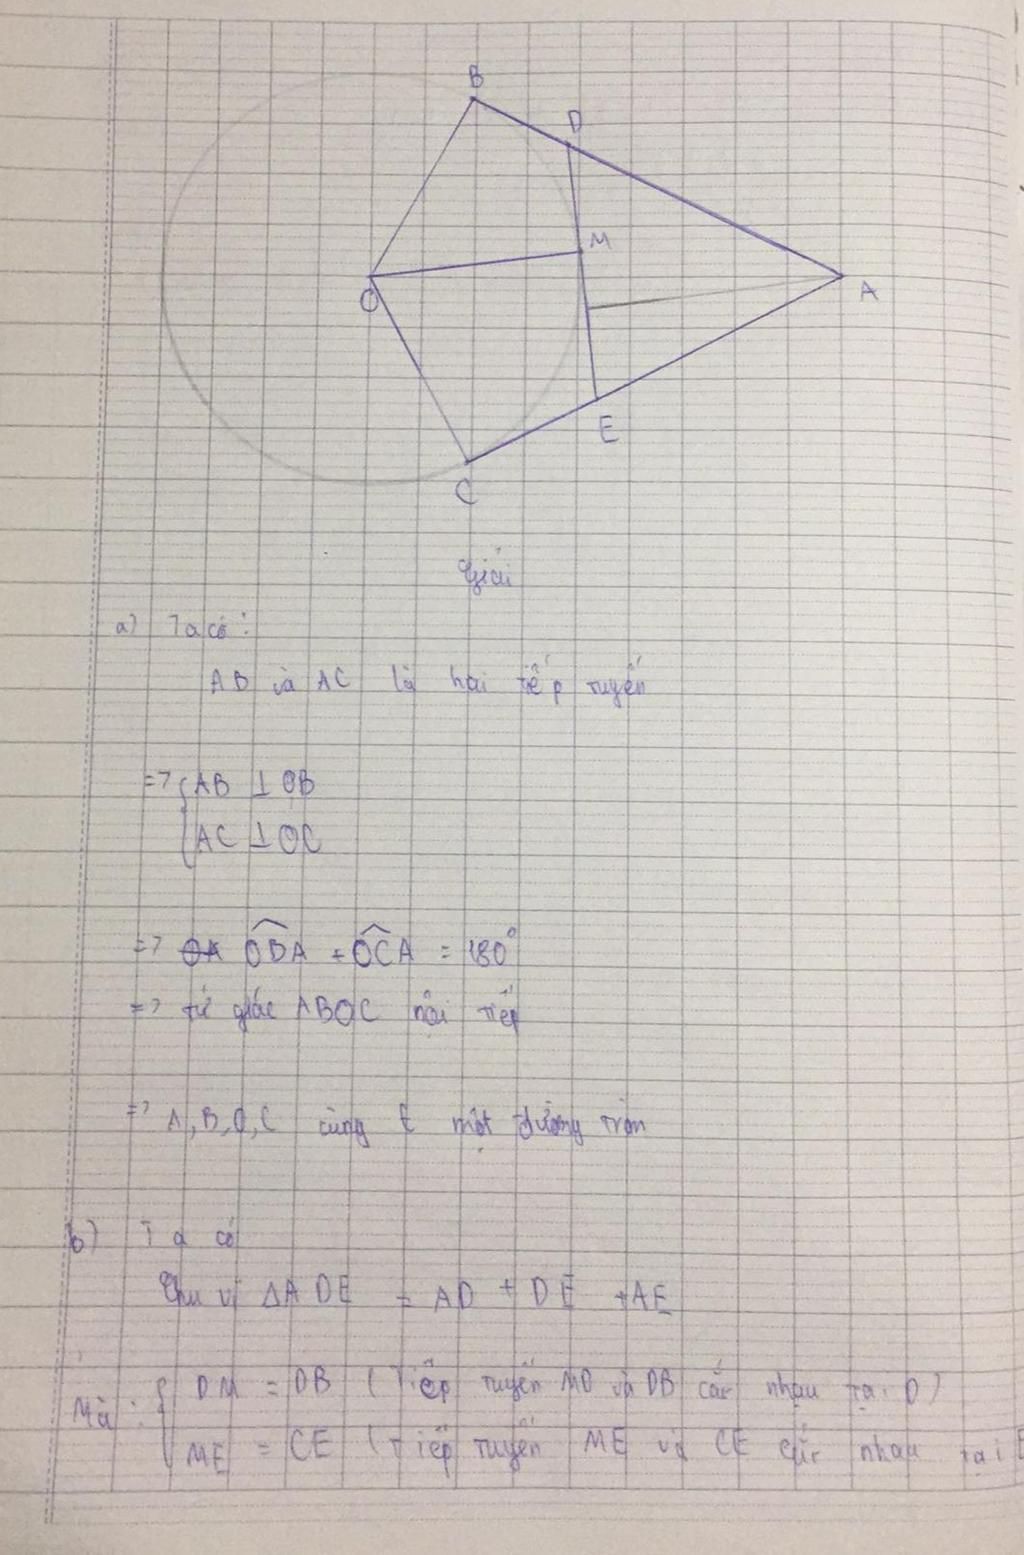 B
D
M
O
A
E
C
Giải
a) Ta có:
AB và AC là hai tiếp tuyến
=> { AB ⊥ OB
AC ⊥ OC
=> OBA + OCA = 180°
=> tứ giác ABOC nội tiếp
=> A, B, O, C cùng ∈ một đường tròn
b) Ta có
Chu vi ΔADE = AD + DE + AE
Mà: { DM = DB (Tiếp tuyến MD và DB cắt nhau tại D)
ME = CE (Tiếp tuyến ME và CE cắt nhau tại E